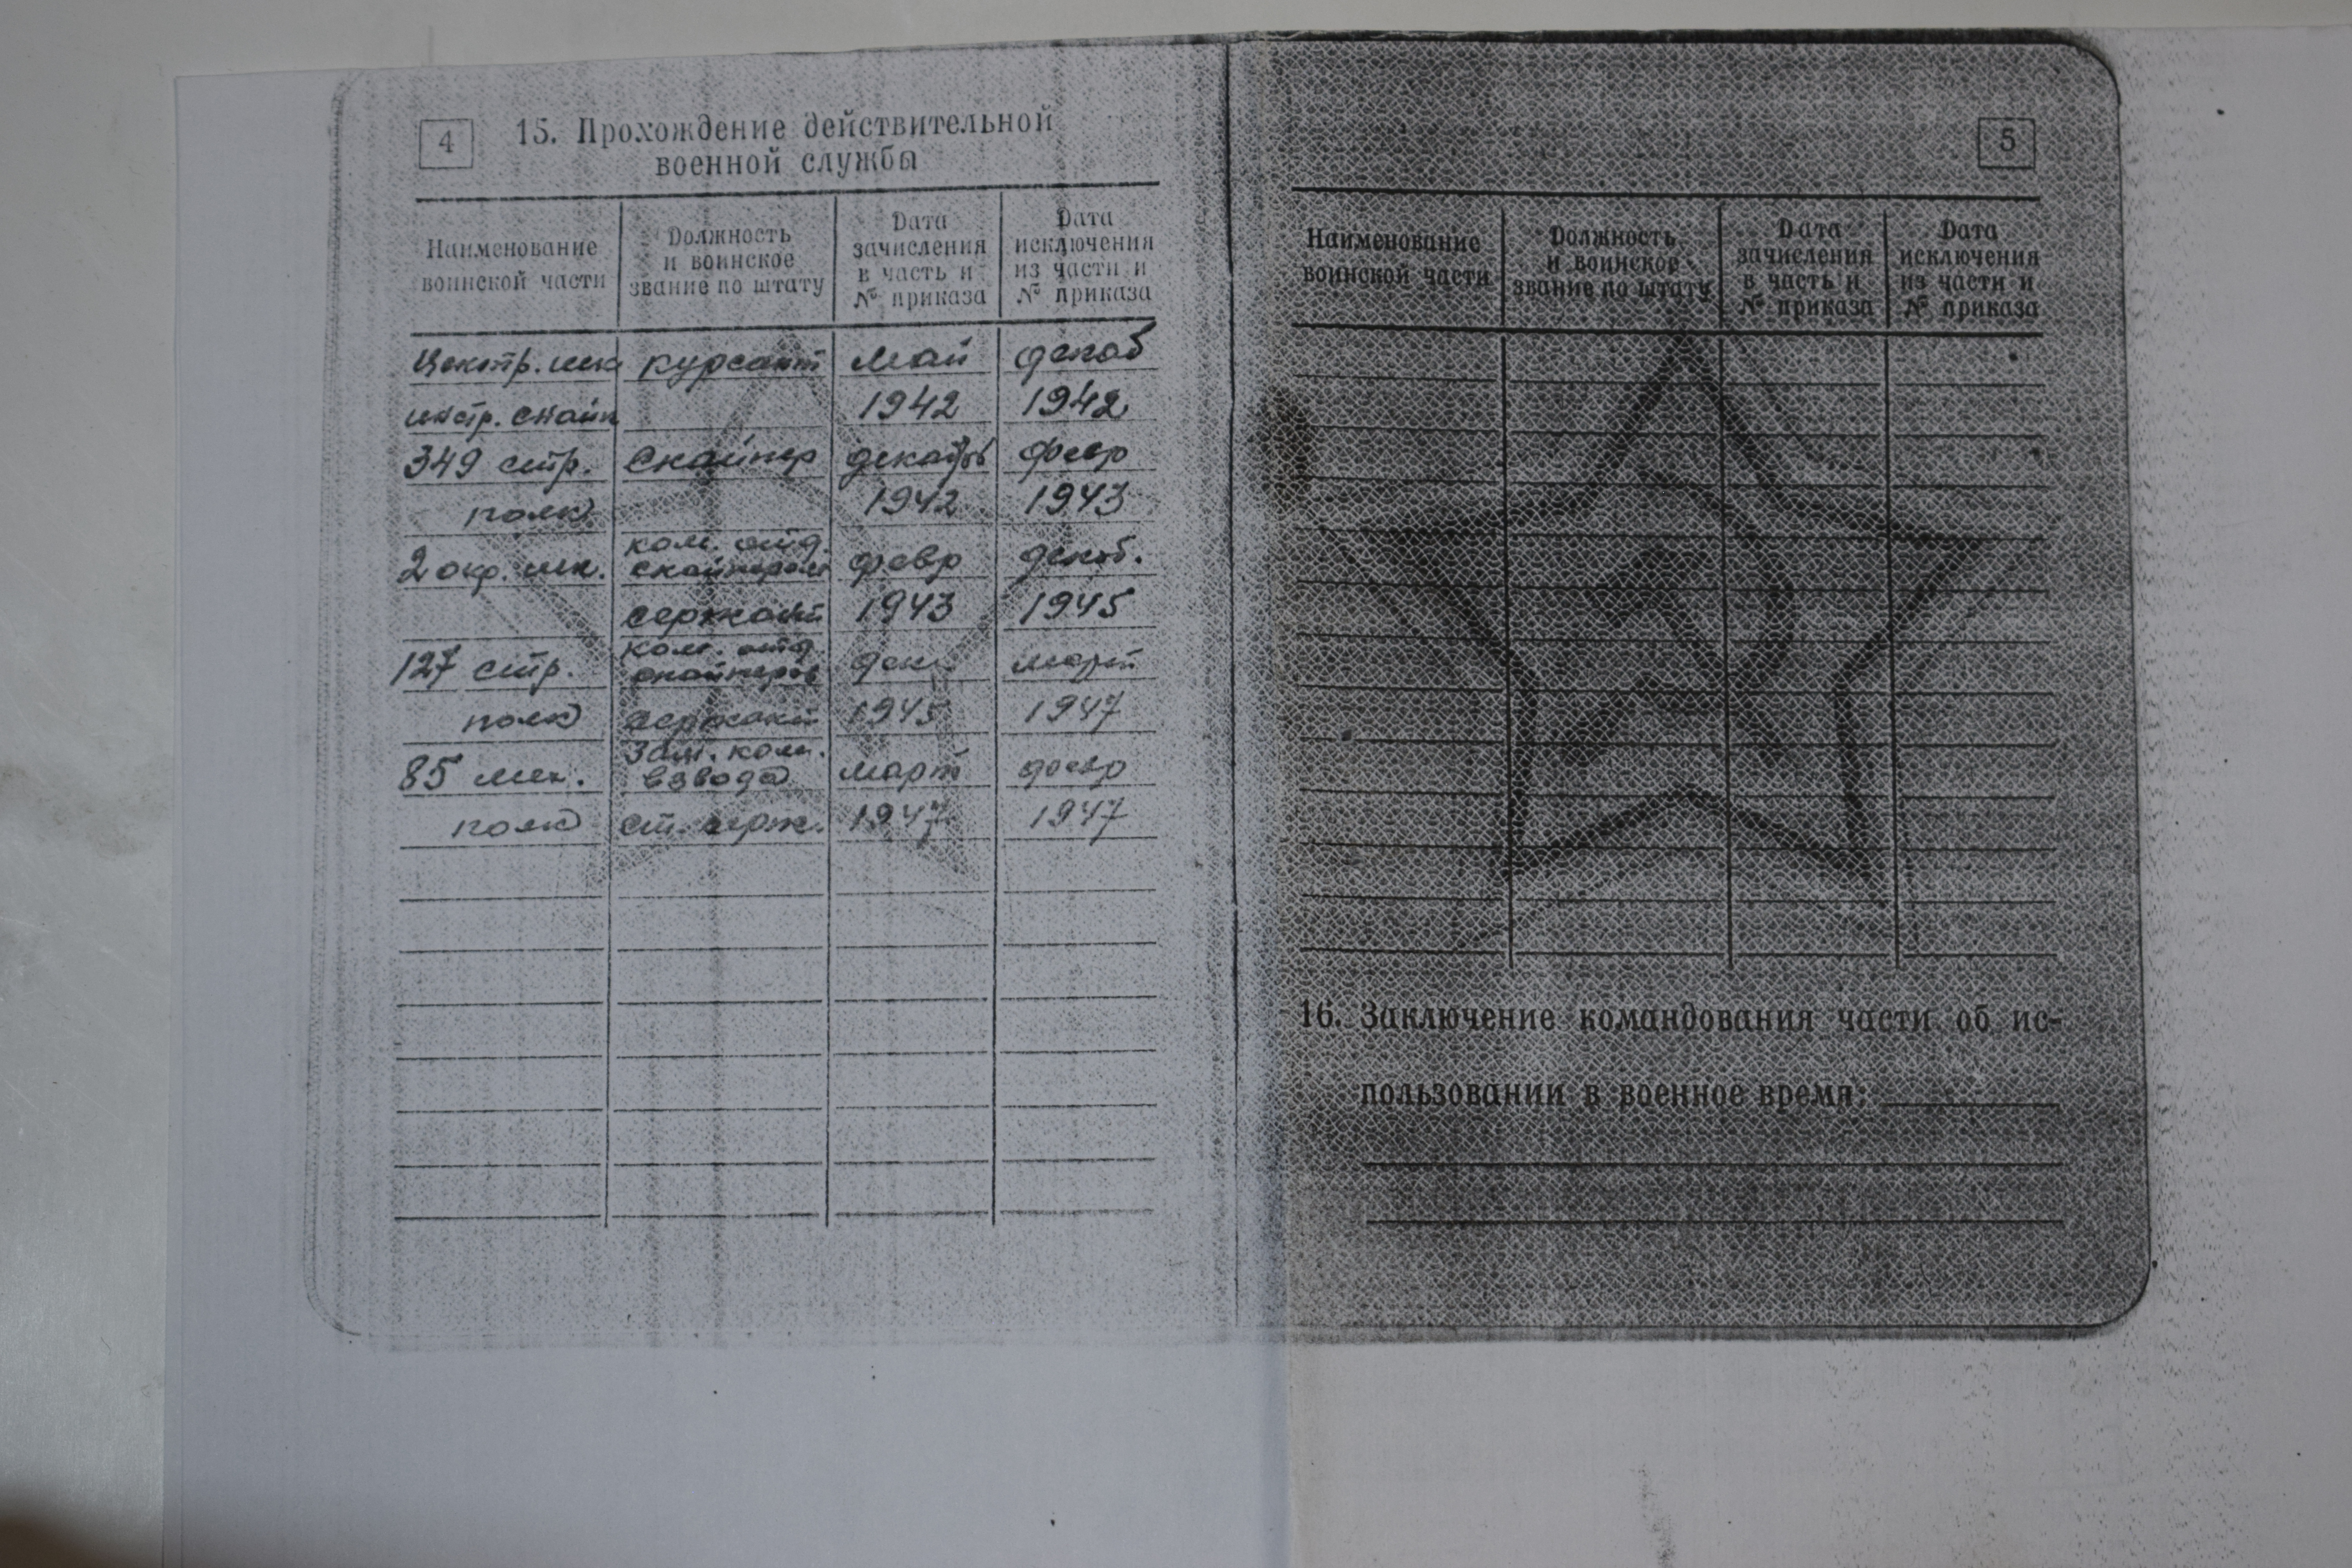 4
15. Прохождение действительной
военной службы
Наименование
воинской части
Должность
и воинское
звание по штату
Дата
зачисления
в часть и
№ приказа
Дата
исключения
из части и
№ приказа
Центр. шк курсант май декаб
инстр. снайп 1942 1942
349 стр. снайпер декабрь февр
полк 1942 1943
ком. отд.
2 окр. шк. снайперов февр декаб.
сержант 1943 1945
ком. отд.
127 стр. снайперов дек. март
полк сержант 1945 1947
зам. ком.
85 мех. взвода март февр
полк ст. серж. 1947 1947
5
Наименование
воинской части
Должность
и воинское
звание по штату
Дата
зачисления
в часть и
№ приказа
Дата
исключения
из части и
№ приказа
16. Заключение командования части об ис-
пользовании в военное время: